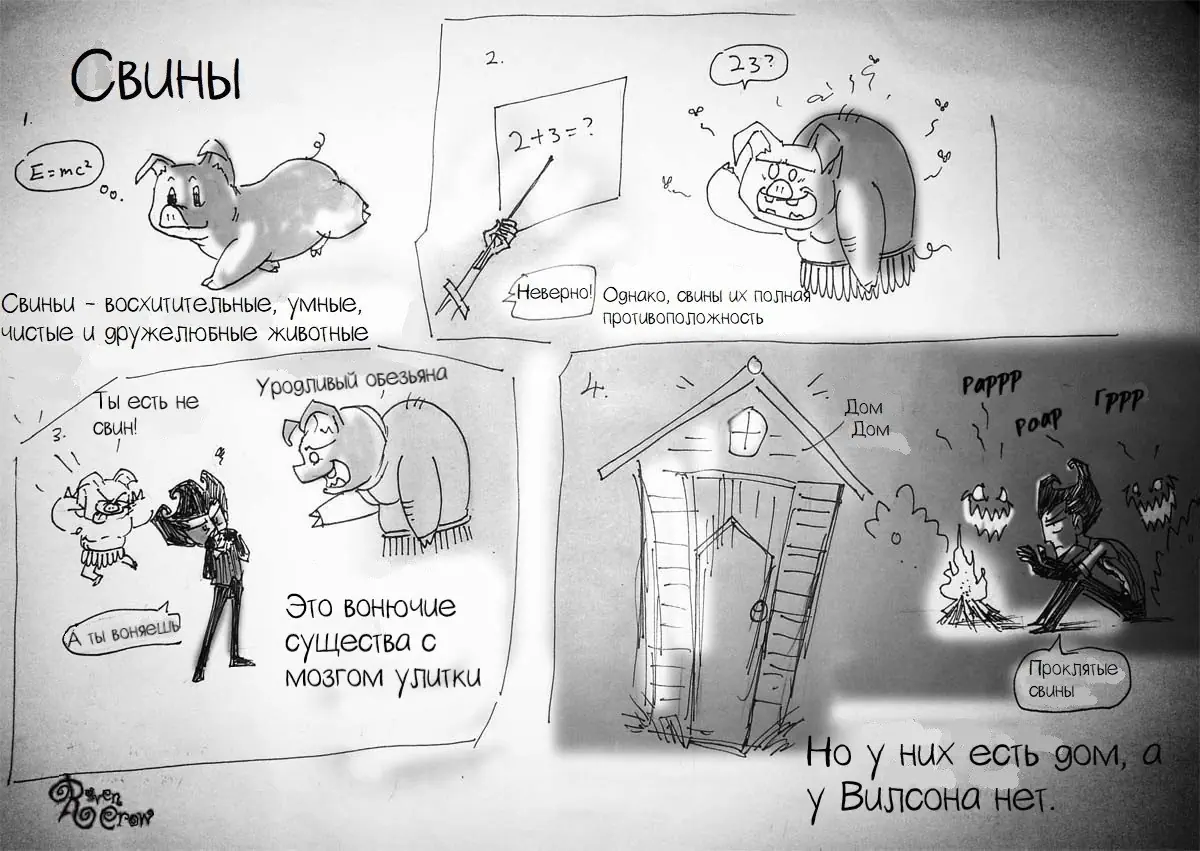 Свины
1.
E=mc²
Свиньи - восхитительные, умные,
чистые и дружелюбные животные
2.
2+3=?
23?
Неверно!
Однако, свины их полная
противоположность
3.
Ты есть не
свин!
Уродливый обезьяна
А ты воняешь
Это вонючие
существа с
мозгом улитки
4.
Дом
Дом
Раррр
Роар
Гррр
Проклятые
свины
Но у них есть дом, а
у Вилсона нет.
Raven
Crow